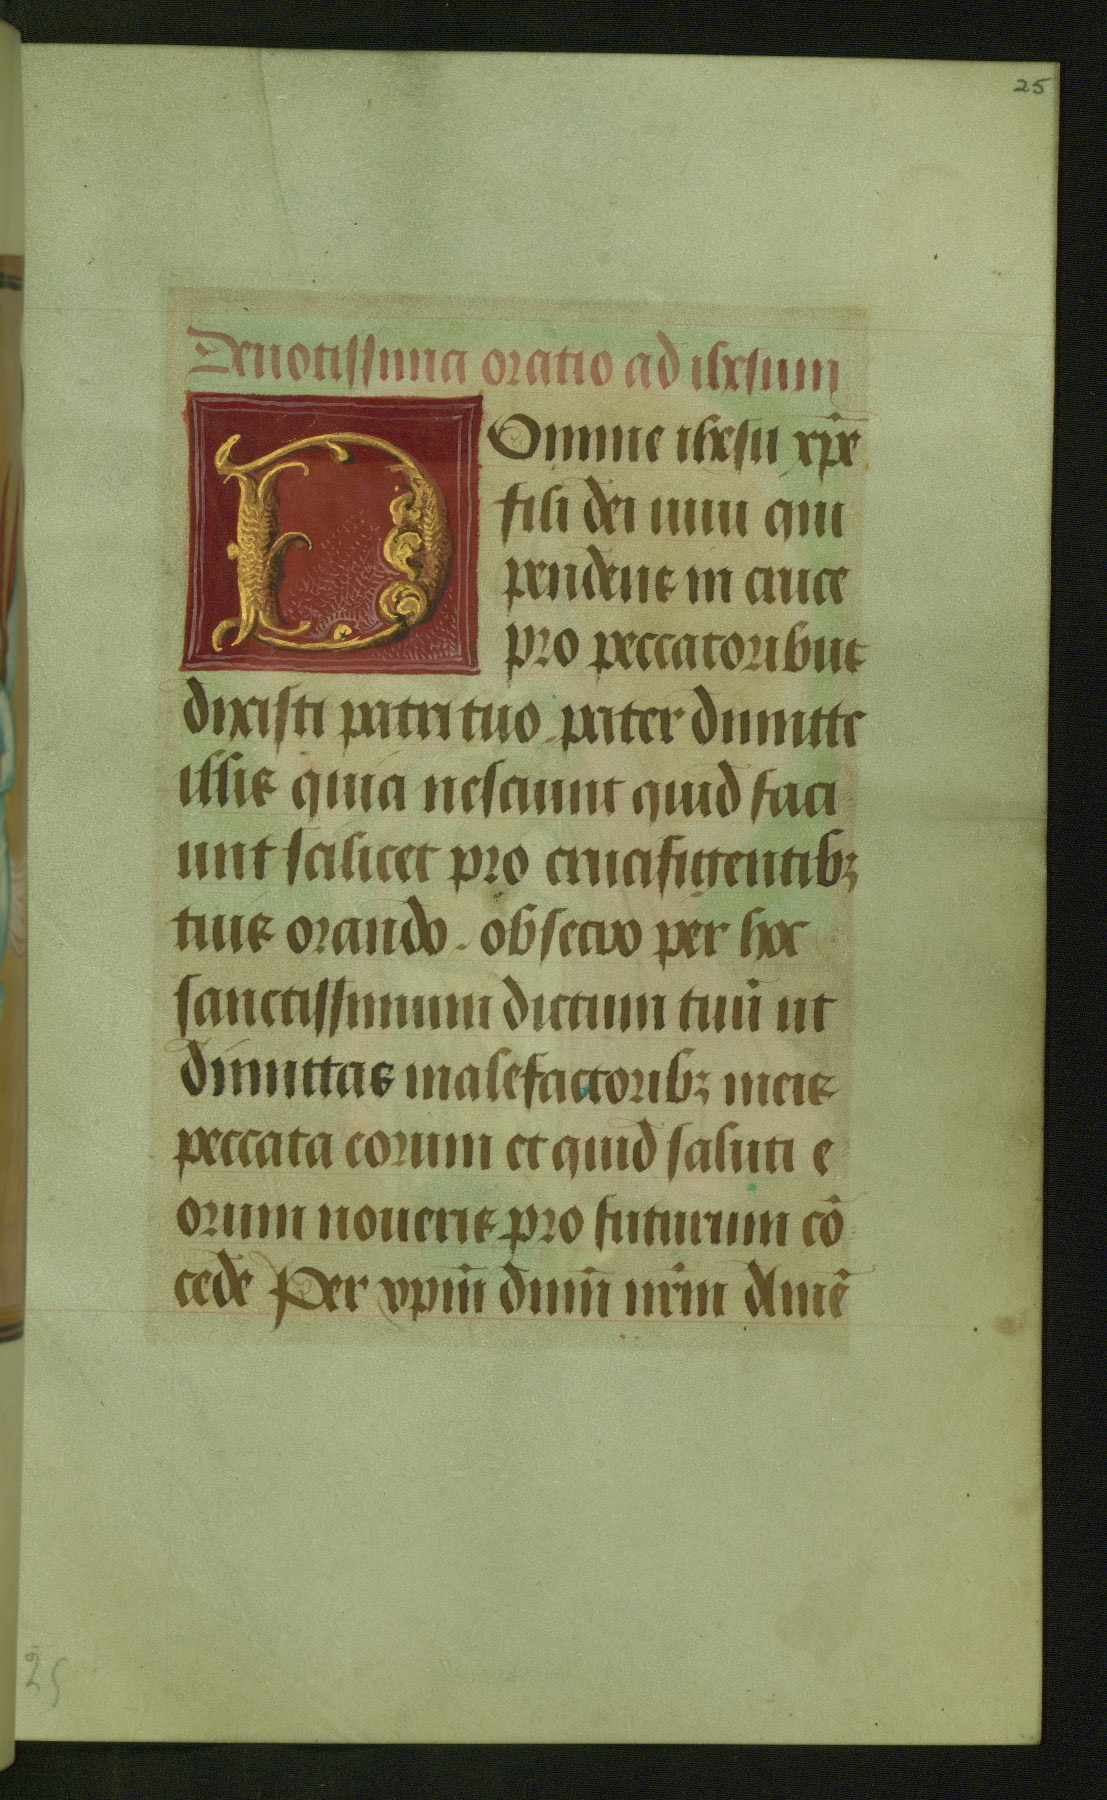 25
Deuotissima oratio ad ihesum
DOmine ihesu xp̄e
fili dei uiui qui
pendens in cruce
pro peccatoribus
dixisti patri tuo pater dimitte
illis quia nesciunt quid faci
unt scilicet pro crucifigentibꝫ
tuis orando. obsecro per hoc
sanctissimum dictum tuū ut
dimittas malefactoribꝫ meis
peccata eorum et quid saluti e
orum noueris pro futurum cō
cede Per xp̄m dnm̄ nr̄m Amē
25